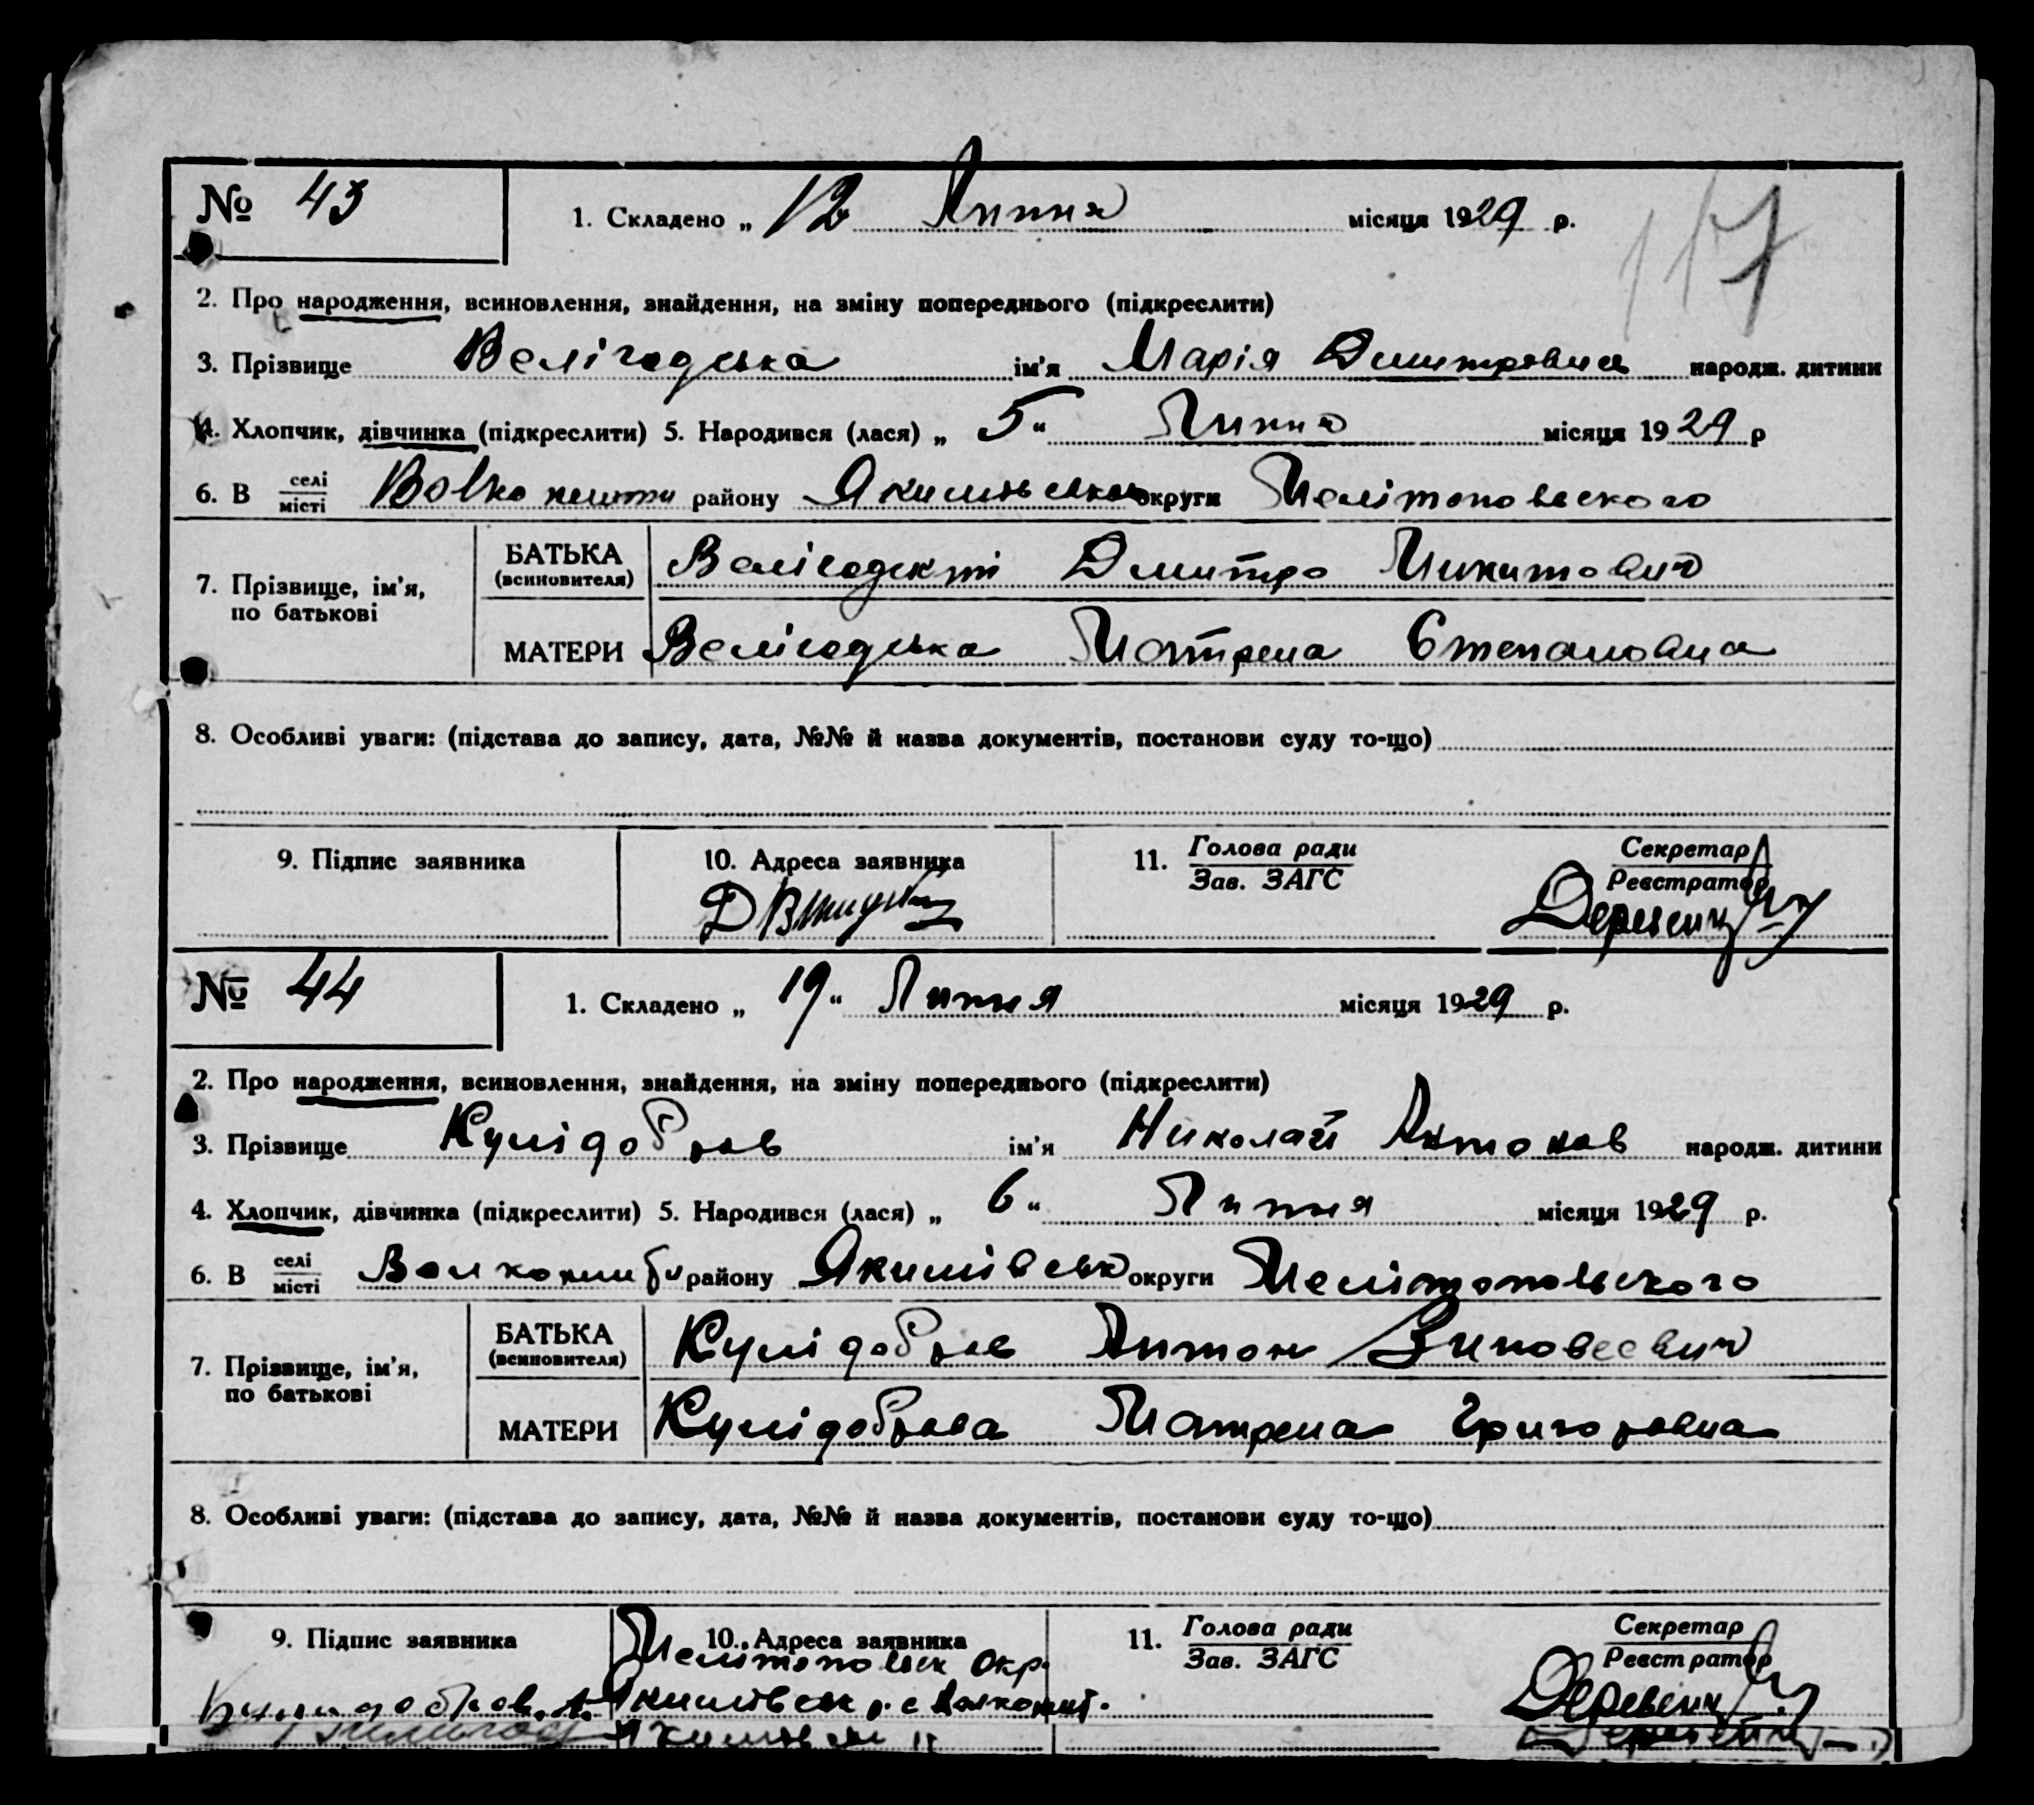 № 43
1. Складено „ 12 Липня місяця 1929 р.
117
2. Про народження, всиновлення, знайдення, на зміну попереднього (підкреслити)
3. Прізвище Велігодська ім'я Марія Дмитровна народж. дитини
4. Хлопчик, дівчинка (підкреслити) 5. Народився (лася) „ 5 " Липня місяця 1929 р
6. В селі/місті района Якимівськ округи Мелітопольского
7. Прізвище, ім'я, по батькові
БАТЬКА (всиновителя) Велігодскі Дмитро Микитович
МАТЕРИ Велігодська Матрена Степановна
8. Особливі уваги: (підстава до запису, дата, №№ й назва документів, постанови суду то-що)
9. Підпис заявника 10. Адреса заявника 11. Голова ради/Зав. ЗАГС Секретар/Реєстратор
№ 44
1. Складено „ 19 " Липня місяця 1929 р.
2. Про народження, всиновлення, знайдення, на зміну попереднього (підкреслити)
3. Прізвище Кулідобров ім'я Николай Антонов народж. дитини
4. Хлопчик, дівчинка (підкреслити) 5. Народився (лася) „ 6 " Липня місяця 1929 р.
6. В селі/місті району Якимівськ округи Мелітопольского
7. Прізвище, ім'я, по батькові
БАТЬКА (всиновителя) Кулідобров Антон Зиновеевич
МАТЕРИ Кулідоброва Матрена Григоровна
8. Особливі уваги: (підстава до запису, дата, №№ й назва документів, постанови суду то-що)
9. Підпис заявника 10. Адреса заявника 11. Голова ради/Зав. ЗАГС Секретар/Реєстратор
Мелітопольск окр.
Якимівськ р. с